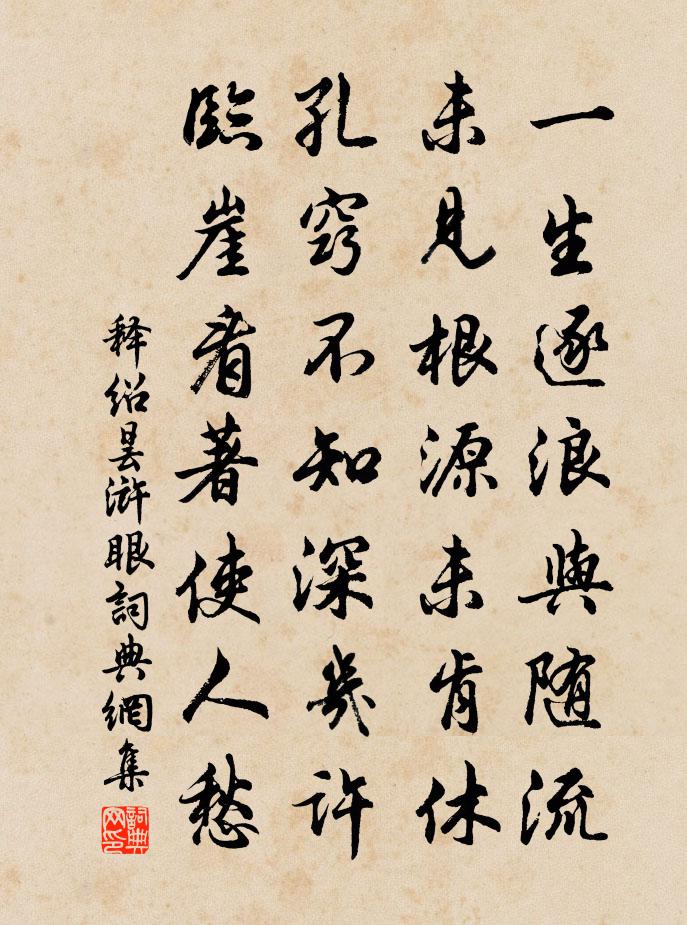 一生逐浪與随流
未見根源未肯休
孔竅不知深幾許
臨崖看著使人愁
释绍昙浒眼詞典網集
詞典网印